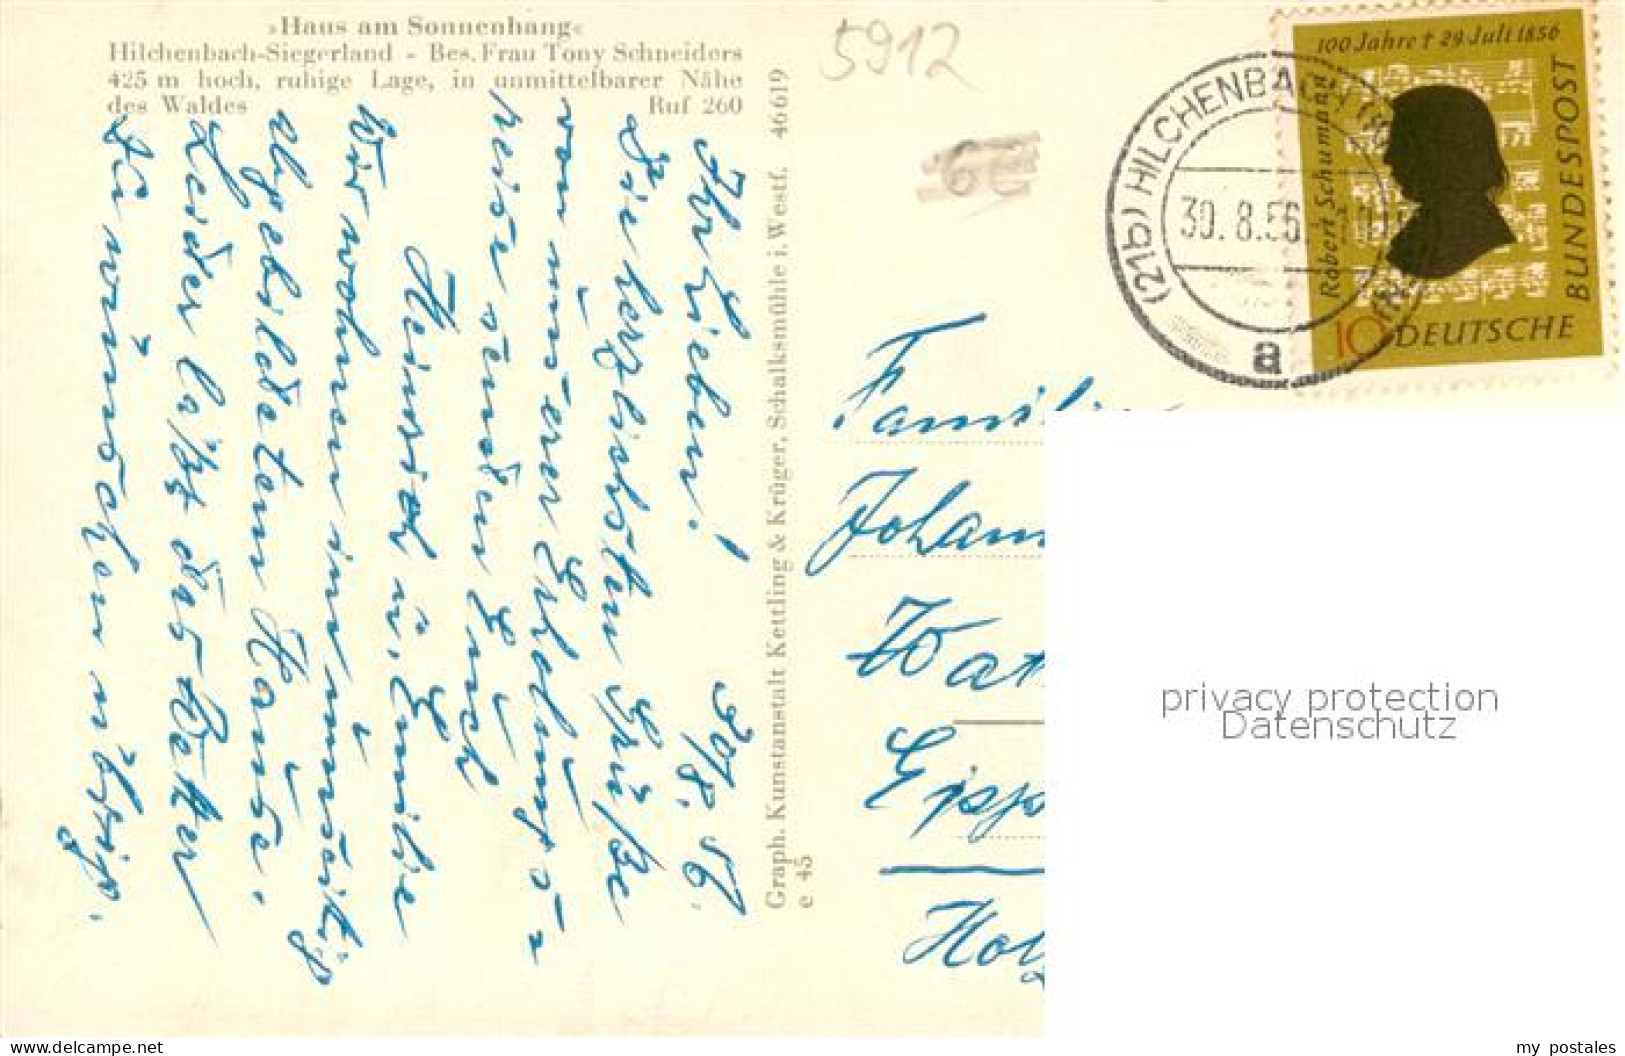 »Haus am Sonnenhang«
Hilchenbach-Siegerland - Bes. Frau Tony Schneiders
425 m hoch, ruhige Lage, in unmittelbarer Nähe
des Waldes Ruf 260
30/8. 56.
Ihr Lieben!
Die herzlichsten Grüße
von unserer Erholungs=
reise senden Euch
Heinrich u. Emilie
Wir wohnen in umseitig
abgebildetem Hause.
Leider läßt das Wetter
zu wünschen übrig.
Graph. Kunstanstalt Kettling & Krüger, Schalksmühle i. Westf. 46619
e 45
5912
6E
(21b) HILCHENBACH
30. 8.56
a
100 Jahre † 29. Juli 1856
Robert Schumann
10 DEUTSCHE
BUNDESPOST
Famili
Johann
Wat
Gipp
Hol
privacy protection
Datenschutz
www.delcampe.net
my_postales